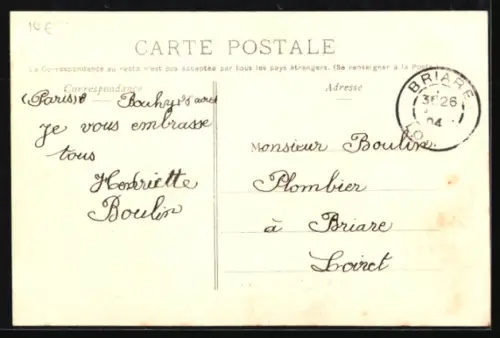 10 €
CARTE POSTALE
La Correspondance au recto n'est pas acceptée par tous les pays étrangers. (Se renseigner à la Poste)
Correspondance
Adresse
(Paris)
Je vous embrasse
tous
Henriette
Boulin
BRIARE
26
04
LO
Monsieur Boulin
Plombier
à Briare
Loiret